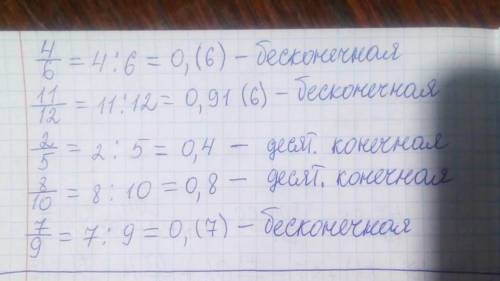 4/6 = 4 : 6 = 0,(6) – бесконечная
11/12 = 11 : 12 = 0,91(6) – бесконечная
2/5 = 2 : 5 = 0,4 – десят. конечная
8/10 = 8 : 10 = 0,8 – десят. конечная
7/9 = 7 : 9 = 0,(7) – бесконечная